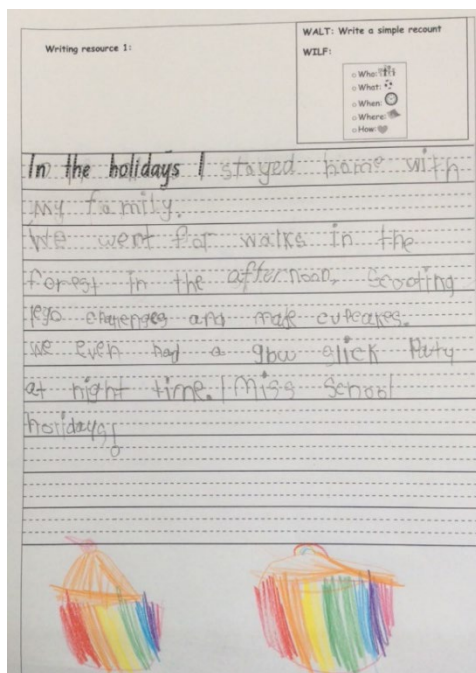 Writing resource 1:
WALT: Write a simple recount
WILF:
Who:
What:
When:
Where:
How:
In the holidays I stayed home with
my family.
We went for walks in the
forest in the afternoon, scooting
lego challenges and made cupcakes.
we even had a glow stick Party
at night time. I miss School
holidays!